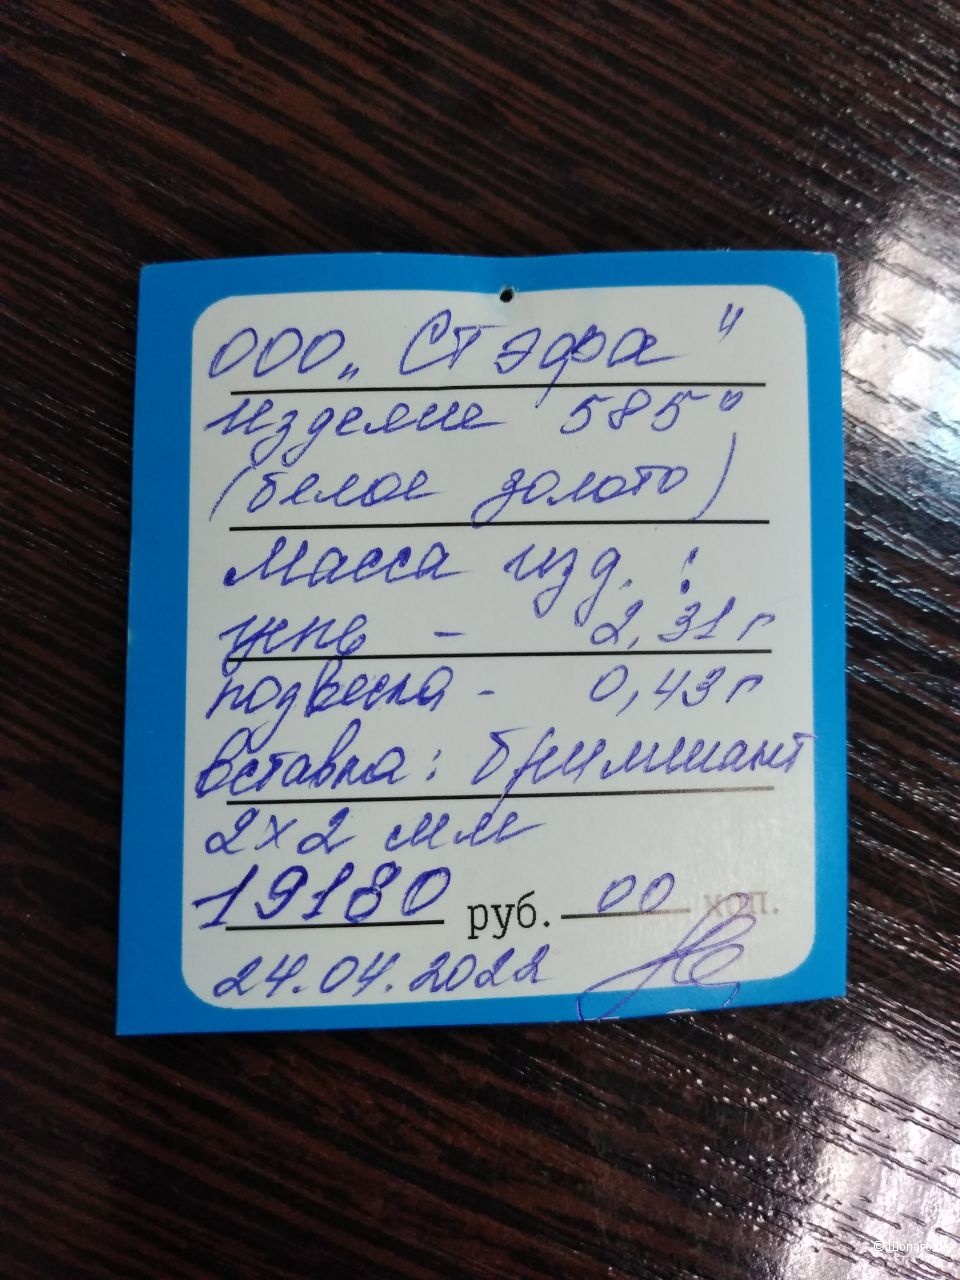 ООО „Стэфа"
Изделие 585°
(белое золото)
Масса изд. :
цепь - 2,31 г
подвеска - 0,43 г
вставка : бриллиант
2х2 мм
19180 руб. 00 коп.
24.04.2022